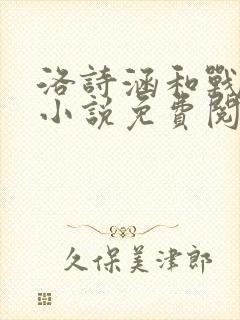 洛詩涵和戰
小說免費閱
久保美津郎